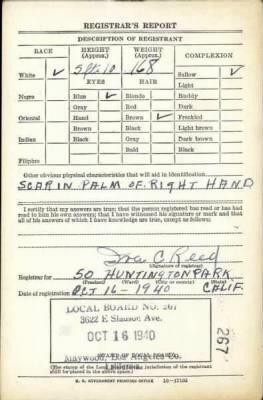 REGISTRAR'S REPORT
DESCRIPTION OF REGISTRANT
RACE HEIGHT (Approx.) WEIGHT (Approx.) COMPLEXION
White ✓ 5 ft. 10 168 Sallow ✓
EYES HAIR Light
Negro Blue ✓ Blonde Ruddy
Gray Red Dark
Oriental Hazel Brown ✓ Freckled
Brown Black Light brown
Indian Black Gray Dark brown
Bald Black
Filipino
Other obvious physical characteristics that will aid in identification
SCAR IN PALM OF RIGHT HAND
I certify that my answers are true; that the person registered has read or has had
read to him his own answers; that I have witnessed his signature or mark and that
all of his answers of which I have knowledge are true, except as follows:
C Reed
(Signature of registrar)
Registrar for 50 HUNTINGTON PARK
(Precinct) (Ward) (City or county) (State)
Date of registration OCT 16 - 1940 CALIF.
LOCAL BOARD NO. 267
3622 E Slauson Ave.
OCT 16 1940
267
Maywood, Los Angeles Co.
(STAMP OF LOCAL BOARD)
(The stamp of the Local Board having jurisdiction of the registrant
shall be placed in the above space.)
U. S. GOVERNMENT PRINTING OFFICE 16-17105